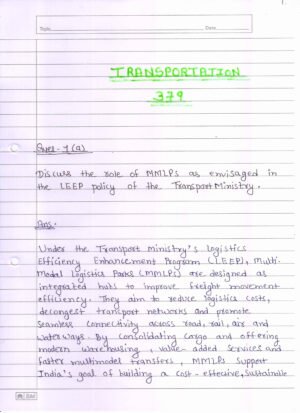 1.
Topic
Date
TRANSPORTATION
379
Ques-1(a)
Discuss the role of MMLPs as envisaged in
the LEEP policy of the Transport Ministry.
Ans.
Under the Transport Ministry's logistics
Efficiency Enhancement Program (LEEP), Multi-
Modal Logistics Parks (MMLPs) are designed as
integrated hubs to improve freight movement
efficiency. They aim to reduce logistics costs,
decongest transport networks and promote
Seamless connectivity across road, rail, air and
waterways. By Consolidating Cargo and offering
modern warehousing, value-added services and
faster multimodal transfers, MMLPs support
India's goal of building a cost-effective, sustainable